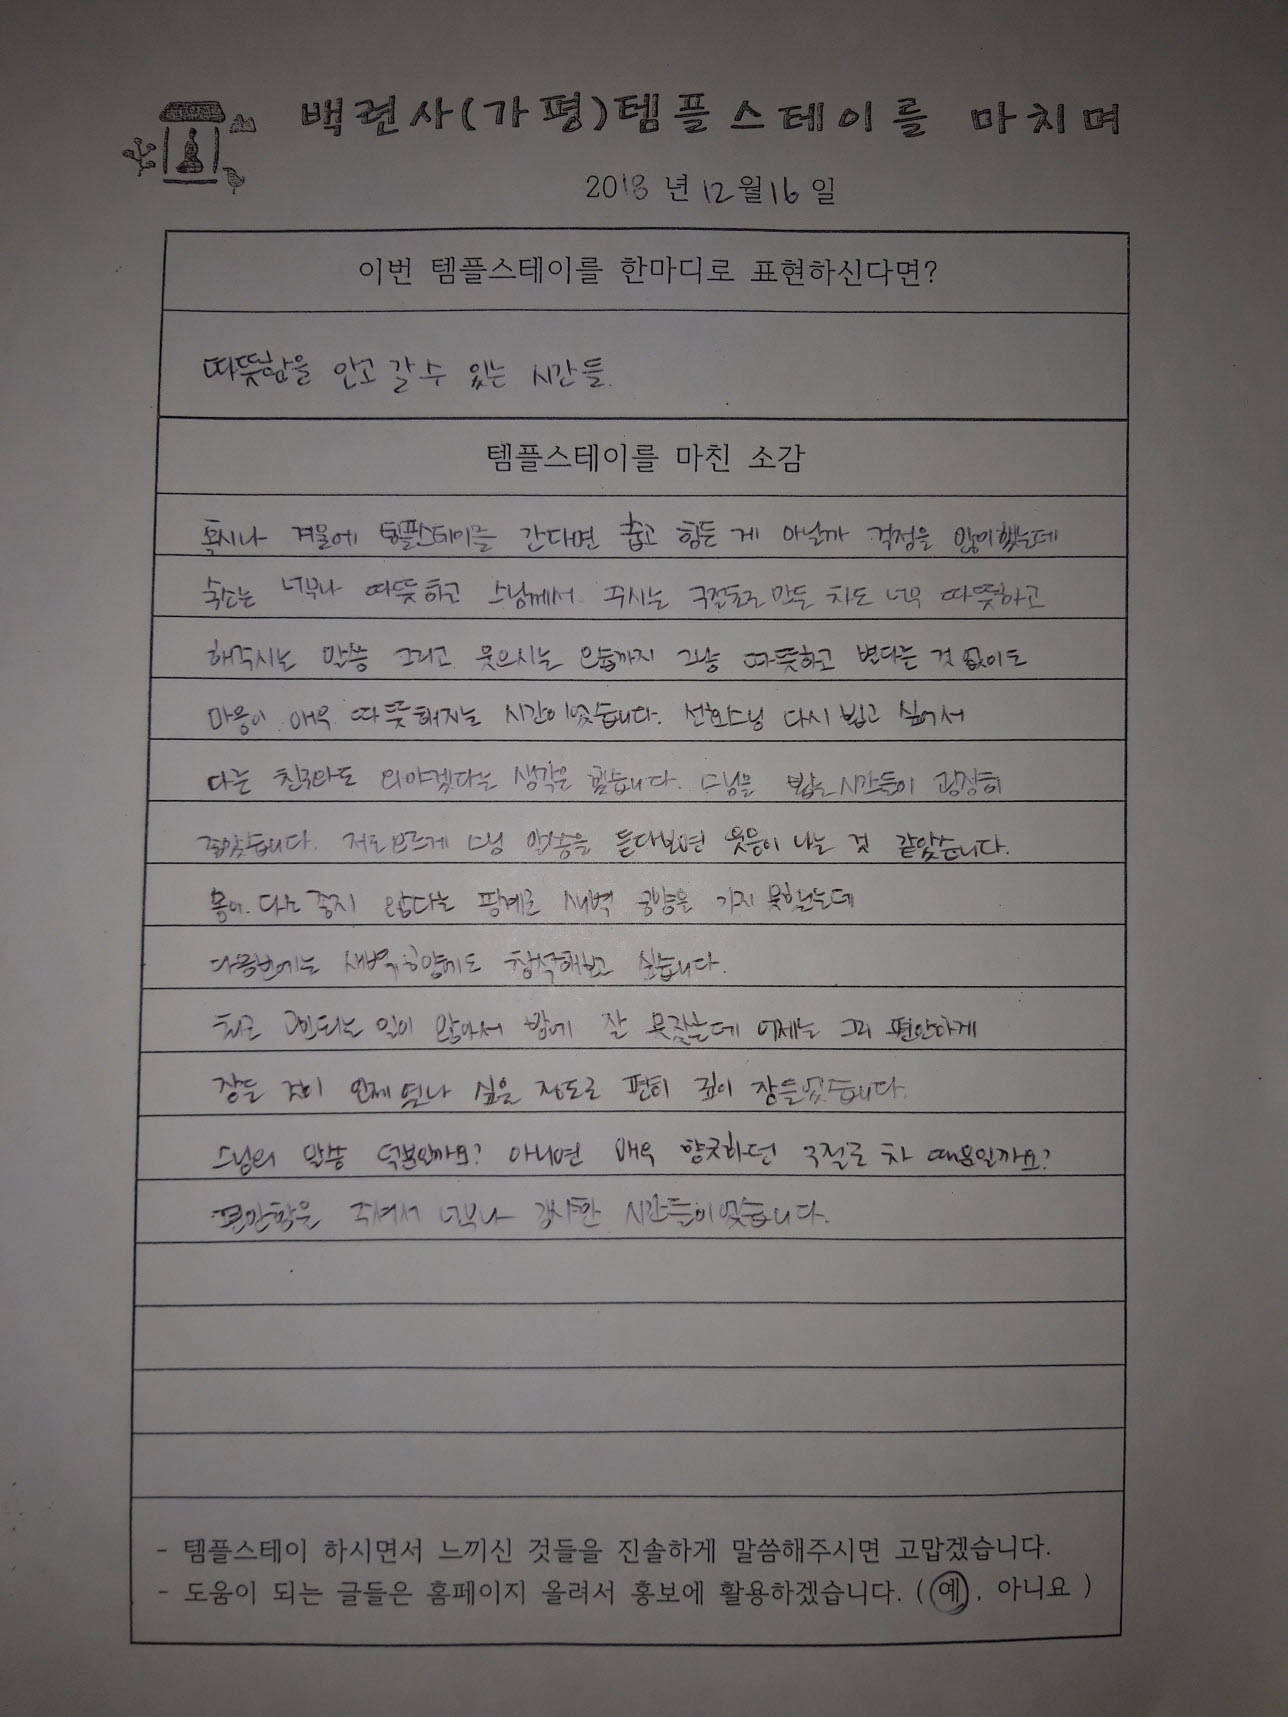 백련사(가평)템플스테이를 마치며
2018년 12월 16일
이번 템플스테이를 한마디로 표현하신다면?
따뜻함을 안고 갈 수 있는 시간들.
템플스테이를 마친 소감
혹시나 겨울에 템플스테이를 간다면 춥고 힘든 게 아닐까 걱정을 많이했는데
숙소는 너무나 따뜻하고 스님께서 주시는 국절로 만든 차도 너무 따뜻하고
해주시는 말씀 그리고 웃으시는 모습까지 그냥 따뜻하고 별다른 것 없이도
마음이 매우 따뜻해지는 시간이었습니다. 선화스님 다시 뵙고 싶어서
다른 친구와도 와야겠다는 생각을 했습니다. 스님을 뵙는 시간들이 굉장히
좋았습니다. 저도모르게 스님 말씀을 듣다보면 웃음이 나는 것 같았습니다.
몸이 다는 좋지 않다는 핑계로 새벽 공양을 가지 못했는데
다음번에는 새벽공양에도 참석해보고 싶습니다.
최근 고민되는 일이 많아서 밤에 잘 못잤는데 어제는 그리 편안하게
잠든 것이 언제였나 싶을 정도로 편히 깊이 잠들었습니다.
스님의 말씀 덕분인가요? 아니면 매우 향긋하던 국절로 차 때문일까요?
편안함을 주셔서 너무나 감사한 시간들이었습니다.
- 템플스테이 하시면서 느끼신 것들을 진솔하게 말씀해주시면 고맙겠습니다.
- 도움이 되는 글들은 홈페이지 올려서 홍보에 활용하겠습니다. ( 예 , 아니요 )